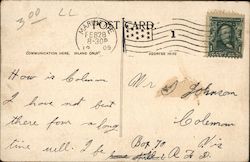 3.00 LL
POST CARD
FEB 28
8-30P
1
COMMUNICATION HERE.
ADDRESS HERE
How is Coleman
I have not been
there for a long
time well. I
Mr Johnson
Coleman
Box 70 Wis
R.F.D.